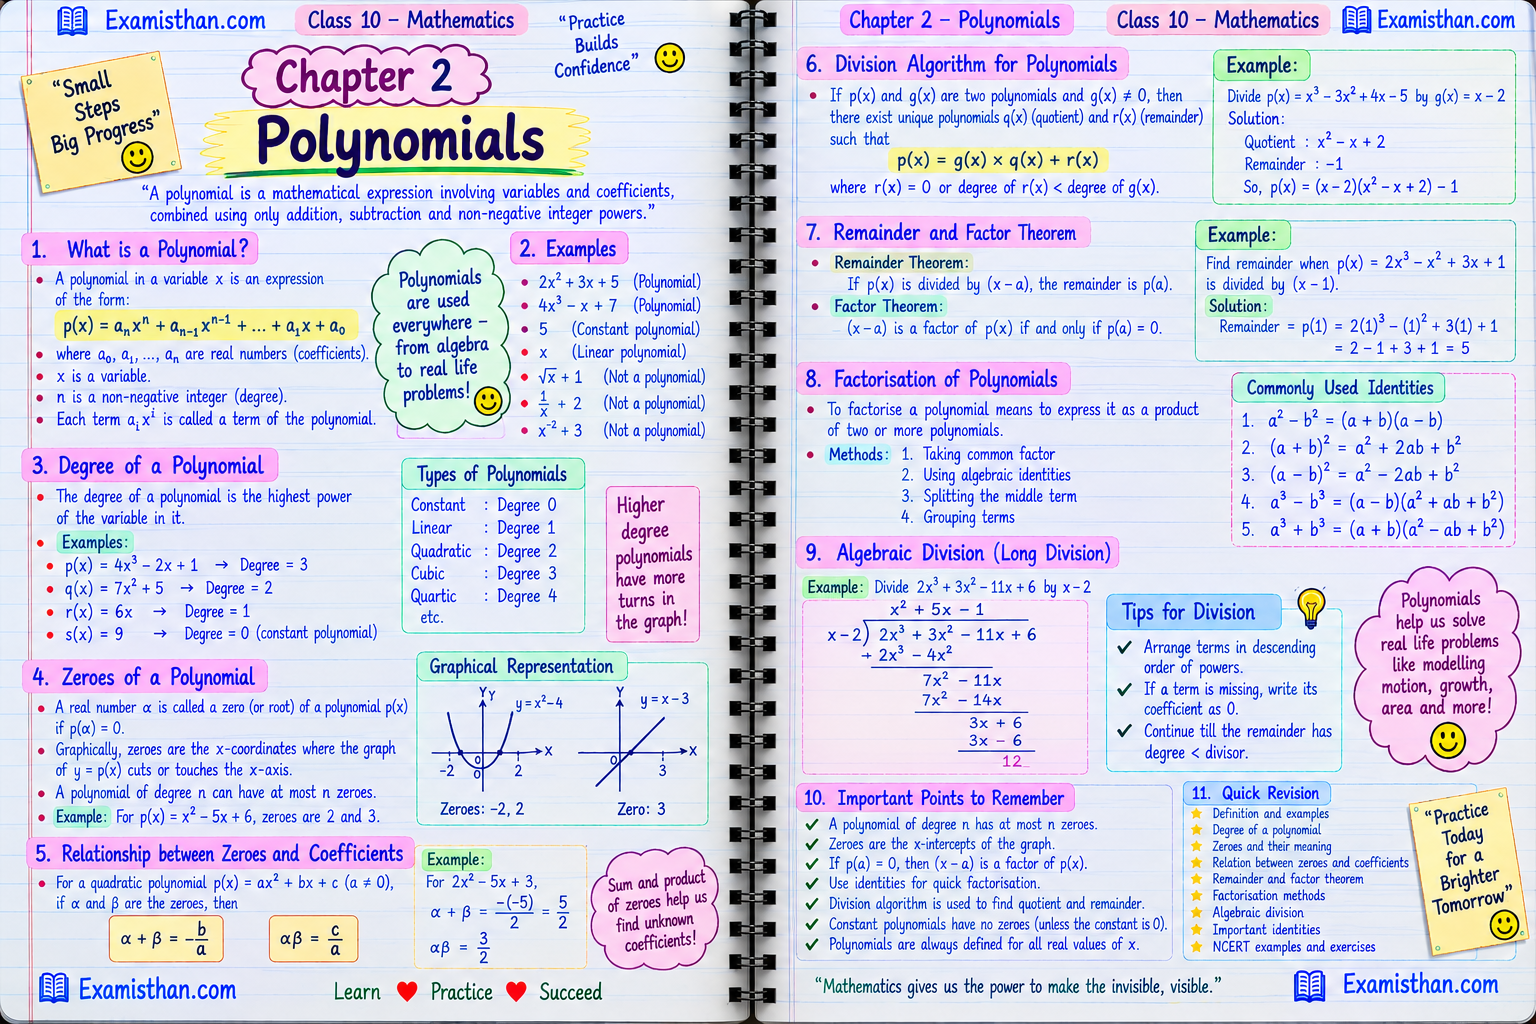 Examisthan.com
Class 10 – Mathematics
“Practice
Builds
Confidence”
“Small
Steps
Big Progress”
Chapter 2
Polynomials
“A polynomial is a mathematical expression involving variables and coefficients,
combined using only addition, subtraction and non-negative integer powers.”
1. What is a Polynomial?
• A polynomial in a variable x is an expression
of the form:
p(x) = aₙxⁿ + aₙ₋₁xⁿ⁻¹ + ... + a₁x + a₀
• where a₀, a₁, ..., aₙ are real numbers (coefficients).
• x is a variable.
• n is a non-negative integer (degree).
• Each term aᵢxⁱ is called a term of the polynomial.
Polynomials
are used
everywhere –
from algebra
to real life
problems!
2. Examples
• 2x² + 3x + 5 (Polynomial)
• 4x³ – x + 7 (Polynomial)
• 5 (Constant polynomial)
• x (Linear polynomial)
• √x + 1 (Not a polynomial)
• 1/x + 2 (Not a polynomial)
• x⁻² + 3 (Not a polynomial)
3. Degree of a Polynomial
• The degree of a polynomial is the highest power
of the variable in it.
• Examples:
• p(x) = 4x³ – 2x + 1 → Degree = 3
• q(x) = 7x² + 5 → Degree = 2
• r(x) = 6x → Degree = 1
• s(x) = 9 → Degree = 0 (constant polynomial)
Types of Polynomials
Constant : Degree 0
Linear : Degree 1
Quadratic : Degree 2
Cubic : Degree 3
Quartic : Degree 4
etc.
Higher
degree
polynomials
have more
turns in
the graph!
4. Zeroes of a Polynomial
• A real number α is called a zero (or root) of a polynomial p(x)
if p(α) = 0.
• Graphically, zeroes are the x-coordinates where the graph
of y = p(x) cuts or touches the x-axis.
• A polynomial of degree n can have at most n zeroes.
• Example: For p(x) = x² – 5x + 6, zeroes are 2 and 3.
Graphical Representation
Y y
y = x² – 4
X
0
-2
0
2
Zeroes: –2, 2
Y
y = x – 3
X
0
3
Zero: 3
5. Relationship between Zeroes and Coefficients
• For a quadratic polynomial p(x) = ax² + bx + c (a ≠ 0),
if α and β are the zeroes, then
α + β = –b/a
αβ = c/a
Example:
For 2x² – 5x + 3,
α + β = –(–5)/2 = 5/2
αβ = 3/2
Sum and product
of zeroes help us
find unknown
coefficients!
Examisthan.com
Learn ♥ Practice ♥ Succeed
Chapter 2 – Polynomials
Class 10 – Mathematics
Examisthan.com
6. Division Algorithm for Polynomials
• If p(x) and g(x) are two polynomials and g(x) ≠ 0, then
there exist unique polynomials q(x) (quotient) and r(x) (remainder)
such that
p(x) = g(x) × q(x) + r(x)
where r(x) = 0 or degree of r(x) < degree of g(x).
Example:
Divide p(x) = x³ – 3x² + 4x – 5 by g(x) = x – 2
Solution:
Quotient : x² – x + 2
Remainder : –1
So, p(x) = (x – 2)(x² – x + 2) – 1
7. Remainder and Factor Theorem
• Remainder Theorem:
If p(x) is divided by (x – a), the remainder is p(a).
• Factor Theorem:
(x – a) is a factor of p(x) if and only if p(a) = 0.
Example:
Find remainder when p(x) = 2x³ – x² + 3x + 1
is divided by (x – 1).
Solution:
Remainder = p(1) = 2(1)³ – (1)² + 3(1) + 1
= 2 – 1 + 3 + 1 = 5
8. Factorisation of Polynomials
• To factorise a polynomial means to express it as a product
of two or more polynomials.
• Methods: 1. Taking common factor
2. Using algebraic identities
3. Splitting the middle term
4. Grouping terms
Commonly Used Identities
1. a² – b² = (a + b)(a – b)
2. (a + b)² = a² + 2ab + b²
3. (a – b)² = a² – 2ab + b²
4. a³ – b³ = (a – b)(a² + ab + b²)
5. a³ + b³ = (a + b)(a² – ab + b²)
9. Algebraic Division (Long Division)
Example: Divide 2x³ + 3x² – 11x + 6 by x – 2
x² + 5x – 1
x – 2) 2x³ + 3x² – 11x + 6
+ 2x³ – 4x²
7x² – 11x
7x² – 14x
3x + 6
3x – 6
12
Tips for Division
✔ Arrange terms in descending
order of powers.
✔ If a term is missing, write its
coefficient as 0.
✔ Continue till the remainder has
degree < divisor.
Polynomials
help us solve
real life problems
like modelling
motion, growth,
area and more!
10. Important Points to Remember
✔ A polynomial of degree n has at most n zeroes.
✔ Zeroes are the x-intercepts of the graph.
✔ If p(a) = 0, then (x – a) is a factor of p(x).
✔ Use identities for quick factorisation.
✔ Division algorithm is used to find quotient and remainder.
✔ Constant polynomials have no zeroes (unless the constant is 0).
✔ Polynomials are always defined for all real values of x.
11. Quick Revision
★ Definition and examples
★ Degree of a polynomial
★ Zeroes and their meaning
★ Relation between zeroes and coefficients
★ Remainder and factor theorem
★ Factorisation methods
★ Algebraic division
★ Important identities
★ NCERT examples and exercises
“Practice
Today
for a
Brighter
Tomorrow”
“Mathematics gives us the power to make the invisible, visible.”
Examisthan.com